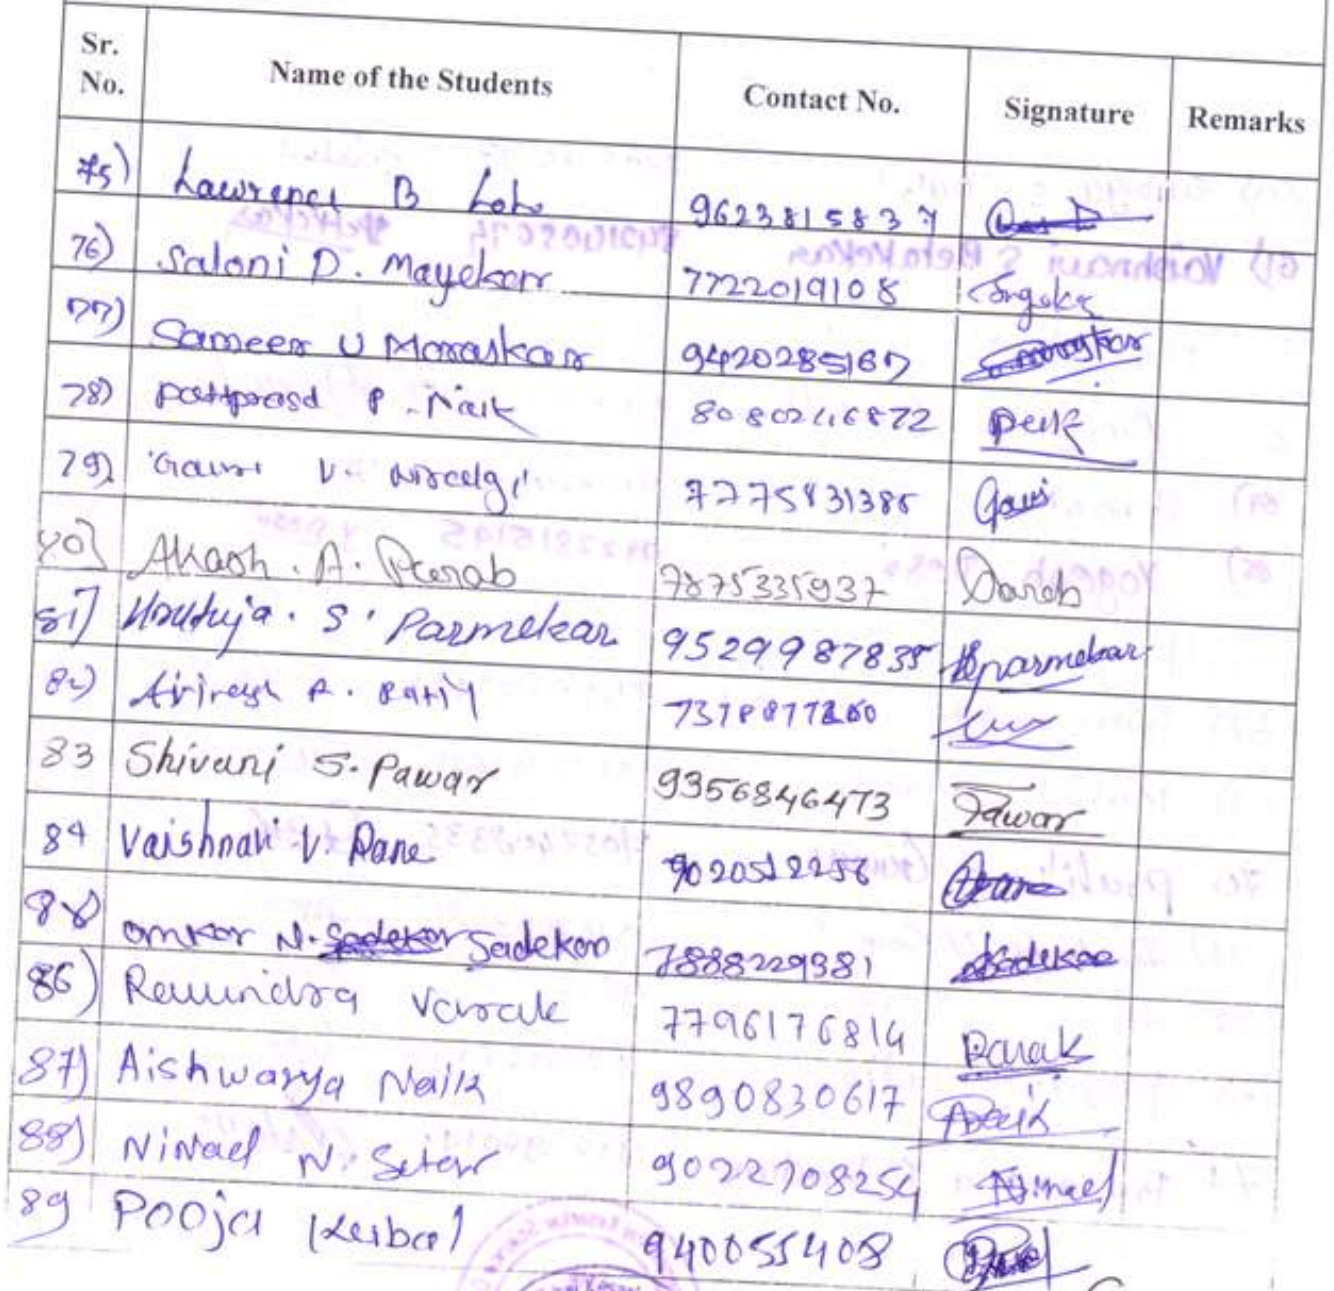 Sr. No. Name of the Students Contact No. Signature Remarks
75) Lawrence B Lobo 9623815837
76) Saloni D. Mayekar 7722019108
77) Sameer U Moraskar 9420285167
78) Dattprasad P. Naik 8080246872
79) Gauri V. 7775831385 Gauri
80) Akash . A. Parab 7875335937 Parab
81) Hrutuja . S . Parmekar 9529987835 Hparmekar
82) A.
83 Shivani S. Pawar 9356846473 Pawar
84 Vaishnavi V. Rane 9020512256 Rane
85 Omkar N. Sadekar Sadekar 7888229381 Sadekar
86) Ravindra Varak 7796176814 Rarak
87) Aishwarya Naik 9890830617 Anaik
88) Ninad N. Satar 9022708254 Ninad
89 Pooja 940055408